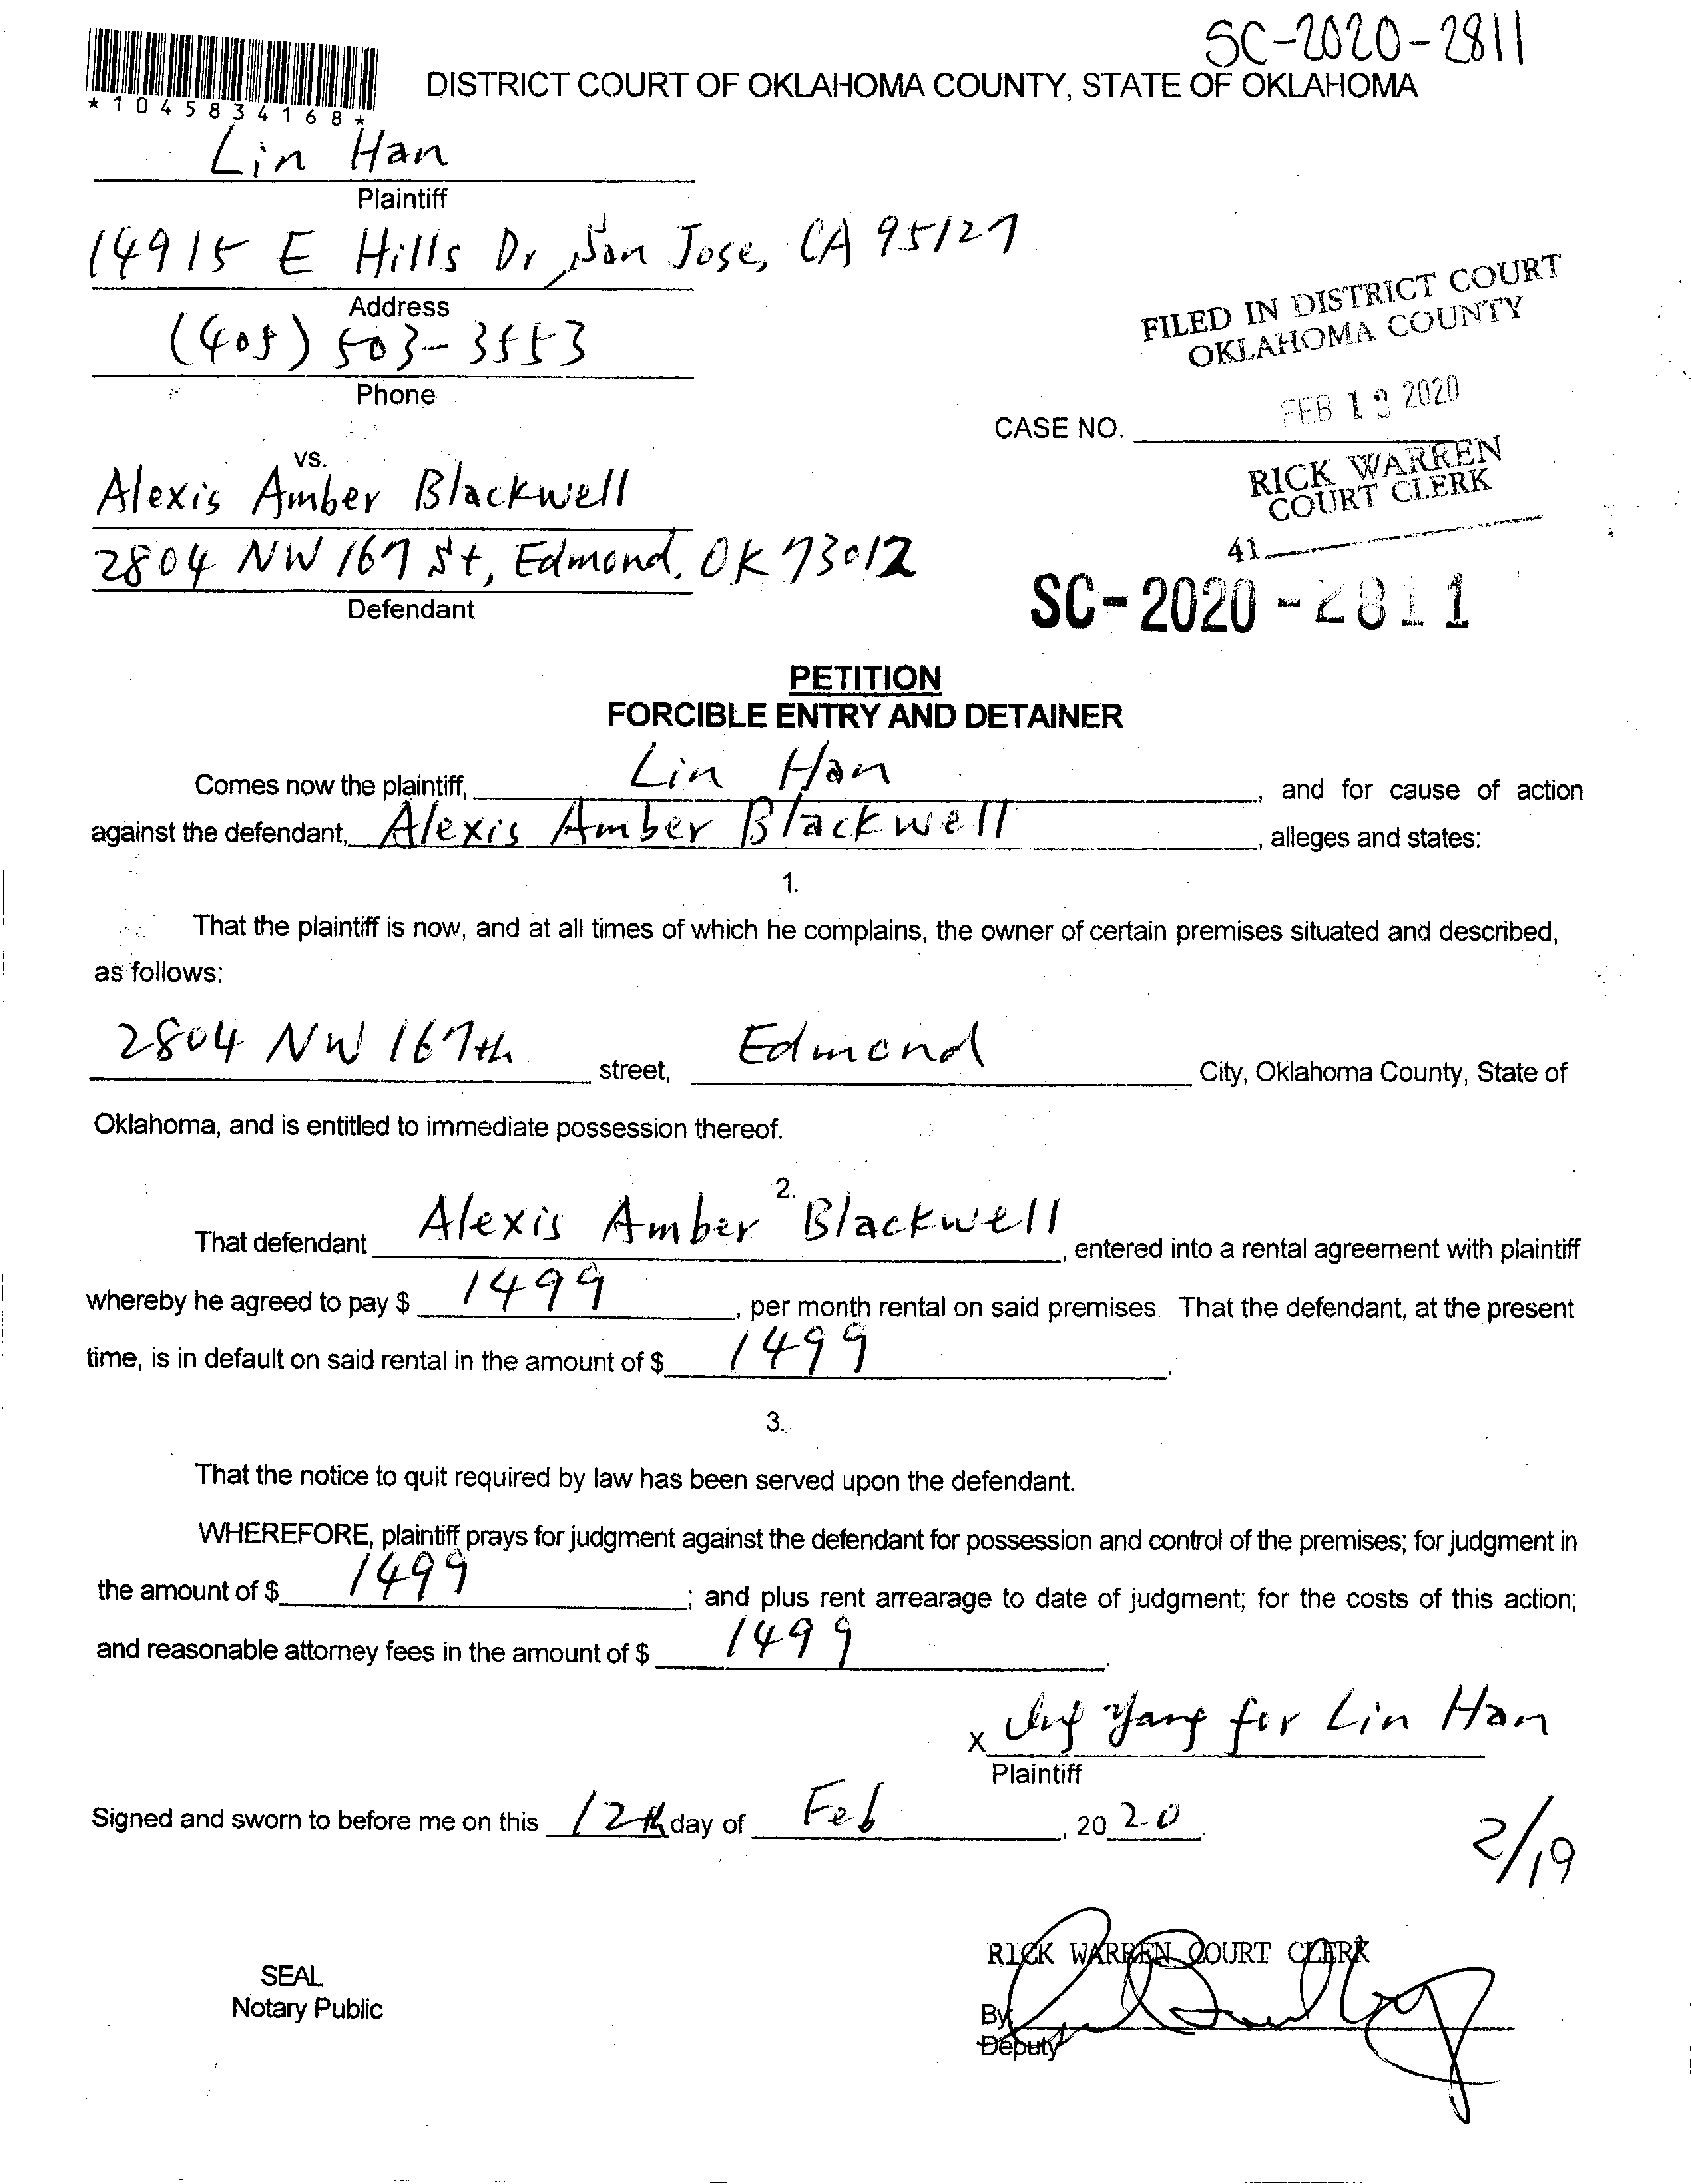 SC-2020-2811
DISTRICT COURT OF OKLAHOMA COUNTY, STATE OF OKLAHOMA
*1045834168*
Lin Han
Plaintiff
14915 E Hills Dr, San Jose, CA 95127
Address
(405) 503-3553
Phone
FILED IN DISTRICT COURT
OKLAHOMA COUNTY
FEB 2020
CASE NO.
RICK WARREN
COURT CLERK
41
vs.
Alexis Amber Blackwell
2804 NW 167 St, Edmond, OK 73012
Defendant
SC-2020-2811
PETITION
FORCIBLE ENTRY AND DETAINER
Comes now the plaintiff, Lin Han, and for cause of action
against the defendant, Alexis Amber Blackwell, alleges and states:
1.
That the plaintiff is now, and at all times of which he complains, the owner of certain premises situated and described,
as follows:
2804 NW 167th street, Edmond City, Oklahoma County, State of
Oklahoma, and is entitled to immediate possession thereof.
2.
That defendant Alexis Amber Blackwell, entered into a rental agreement with plaintiff
whereby he agreed to pay $ 1499, per month rental on said premises. That the defendant, at the present
time, is in default on said rental in the amount of $ 1499.
3.
That the notice to quit required by law has been served upon the defendant.
WHEREFORE, plaintiff prays for judgment against the defendant for possession and control of the premises; for judgment in
the amount of $ 1499; and plus rent arrearage to date of judgment; for the costs of this action;
and reasonable attorney fees in the amount of $ 1499.
x Yang for Lin Han
Plaintiff
Signed and sworn to before me on this 12th day of Feb, 2020.
2/19
RICK WARREN COURT CLERK
SEAL
Notary Public
By
Deputy